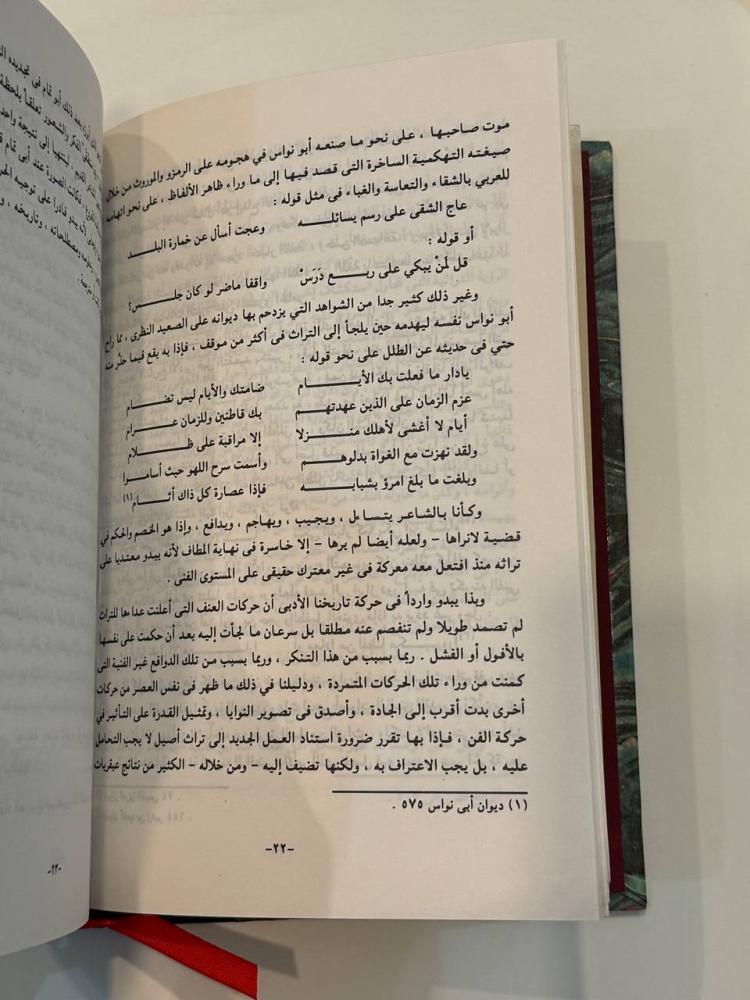 موت صاحبها ، على نحو ما صنعه أبو نواس في هجومه على الرمزو والموروث من خلال
صيغته التهكمية الساخرة التى قصد فيها إلى ما وراء ظاهر الألفاظ ، على نحو اتهامه
للعربي بالشقاء والتعاسة والغباء فى مثل قوله :
عاج الشقى على رسم يسائلـــــه وعجت أسأل عن خمارة البلـــد
أو قوله :
قل لَمَنْ يبكي على ربـــع دَرَسْ واقفا ماضر لو كان جلـــس؟
وغير ذلك كثير جدا من الشواهد التي يزدحم بها ديوانه على الصعيد النظرى ، مما راح
أبو نواس نفسه ليهدمه حين يلجأ إلى التراث فى أكثر من موقف ، فإذا به يقع فيما حذَّر منه
حتي فى حديثه عن الطلل على نحو قوله :
يادار ما فعلت بك الأيـــــام ضامتك والأيام ليس تضـــــام
عزم الزمان على الذين عهدتهـــم بك قاطنين وللزمان عـــــرام
أيام لا أغشى لأهلك منـــــزلا إلا مراقبة على ظـــــلام
ولقد نهزت مع الغواة بدلوهـــم وأسمت سرح اللهو حيث أسامـــوا
وبلغت ما بلغ امرؤ بشبابـــه فإذا عصارة كل ذاك أثـــــام(١)
وكأنا بالشاعر يتساءل ، ويجيب ، ويهاجم ، ويدافع ، وإذا هو الخصم والحكم في
قضية لانراها - ولعله أيضا لم يرها - إلا خاسرة فى نهاية المطاف لأنه يبدو معتديا على
تراثه منذ افتعل معه معركة فى غير معترك حقيقى على المستوى الفنى .
وبذا يبدو وارداً فى حركة تاريخنا الأدبى أن حركات العنف التى أعلنت عداءها للتراث
لم تصمد طويلا ولم تنفصم عنه مطلقا بل سرعان ما لجأت إليه بعد أن حكمت على نفسها
بالأفول أو الفشل . ربما بسبب من هذا التنكر ، وربما بسبب من تلك الدوافع غير الفنية التى
كمنت من وراء تلك الحركات المتمردة ، ودليلنا في ذلك ما ظهر فى نفس العصر من حركات
أخرى بدت أقرب إلى الجادة ، وأصدق فى تصوير النوايا ، وتمثيل القدرة على التأثير فى
حركة الفن ، فإذا بها تقرر ضرورة استناد العمل الجديد إلى تراث أصيل لا يجب التحامل
عليه ، بل يجب الاعتراف به ، ولكنها تضيف إليه - ومن خلاله - الكثير من نتائج عبقريات
(١) ديوان أبى نواس ٥٧٥ .
-٢٢-
-٢٣-